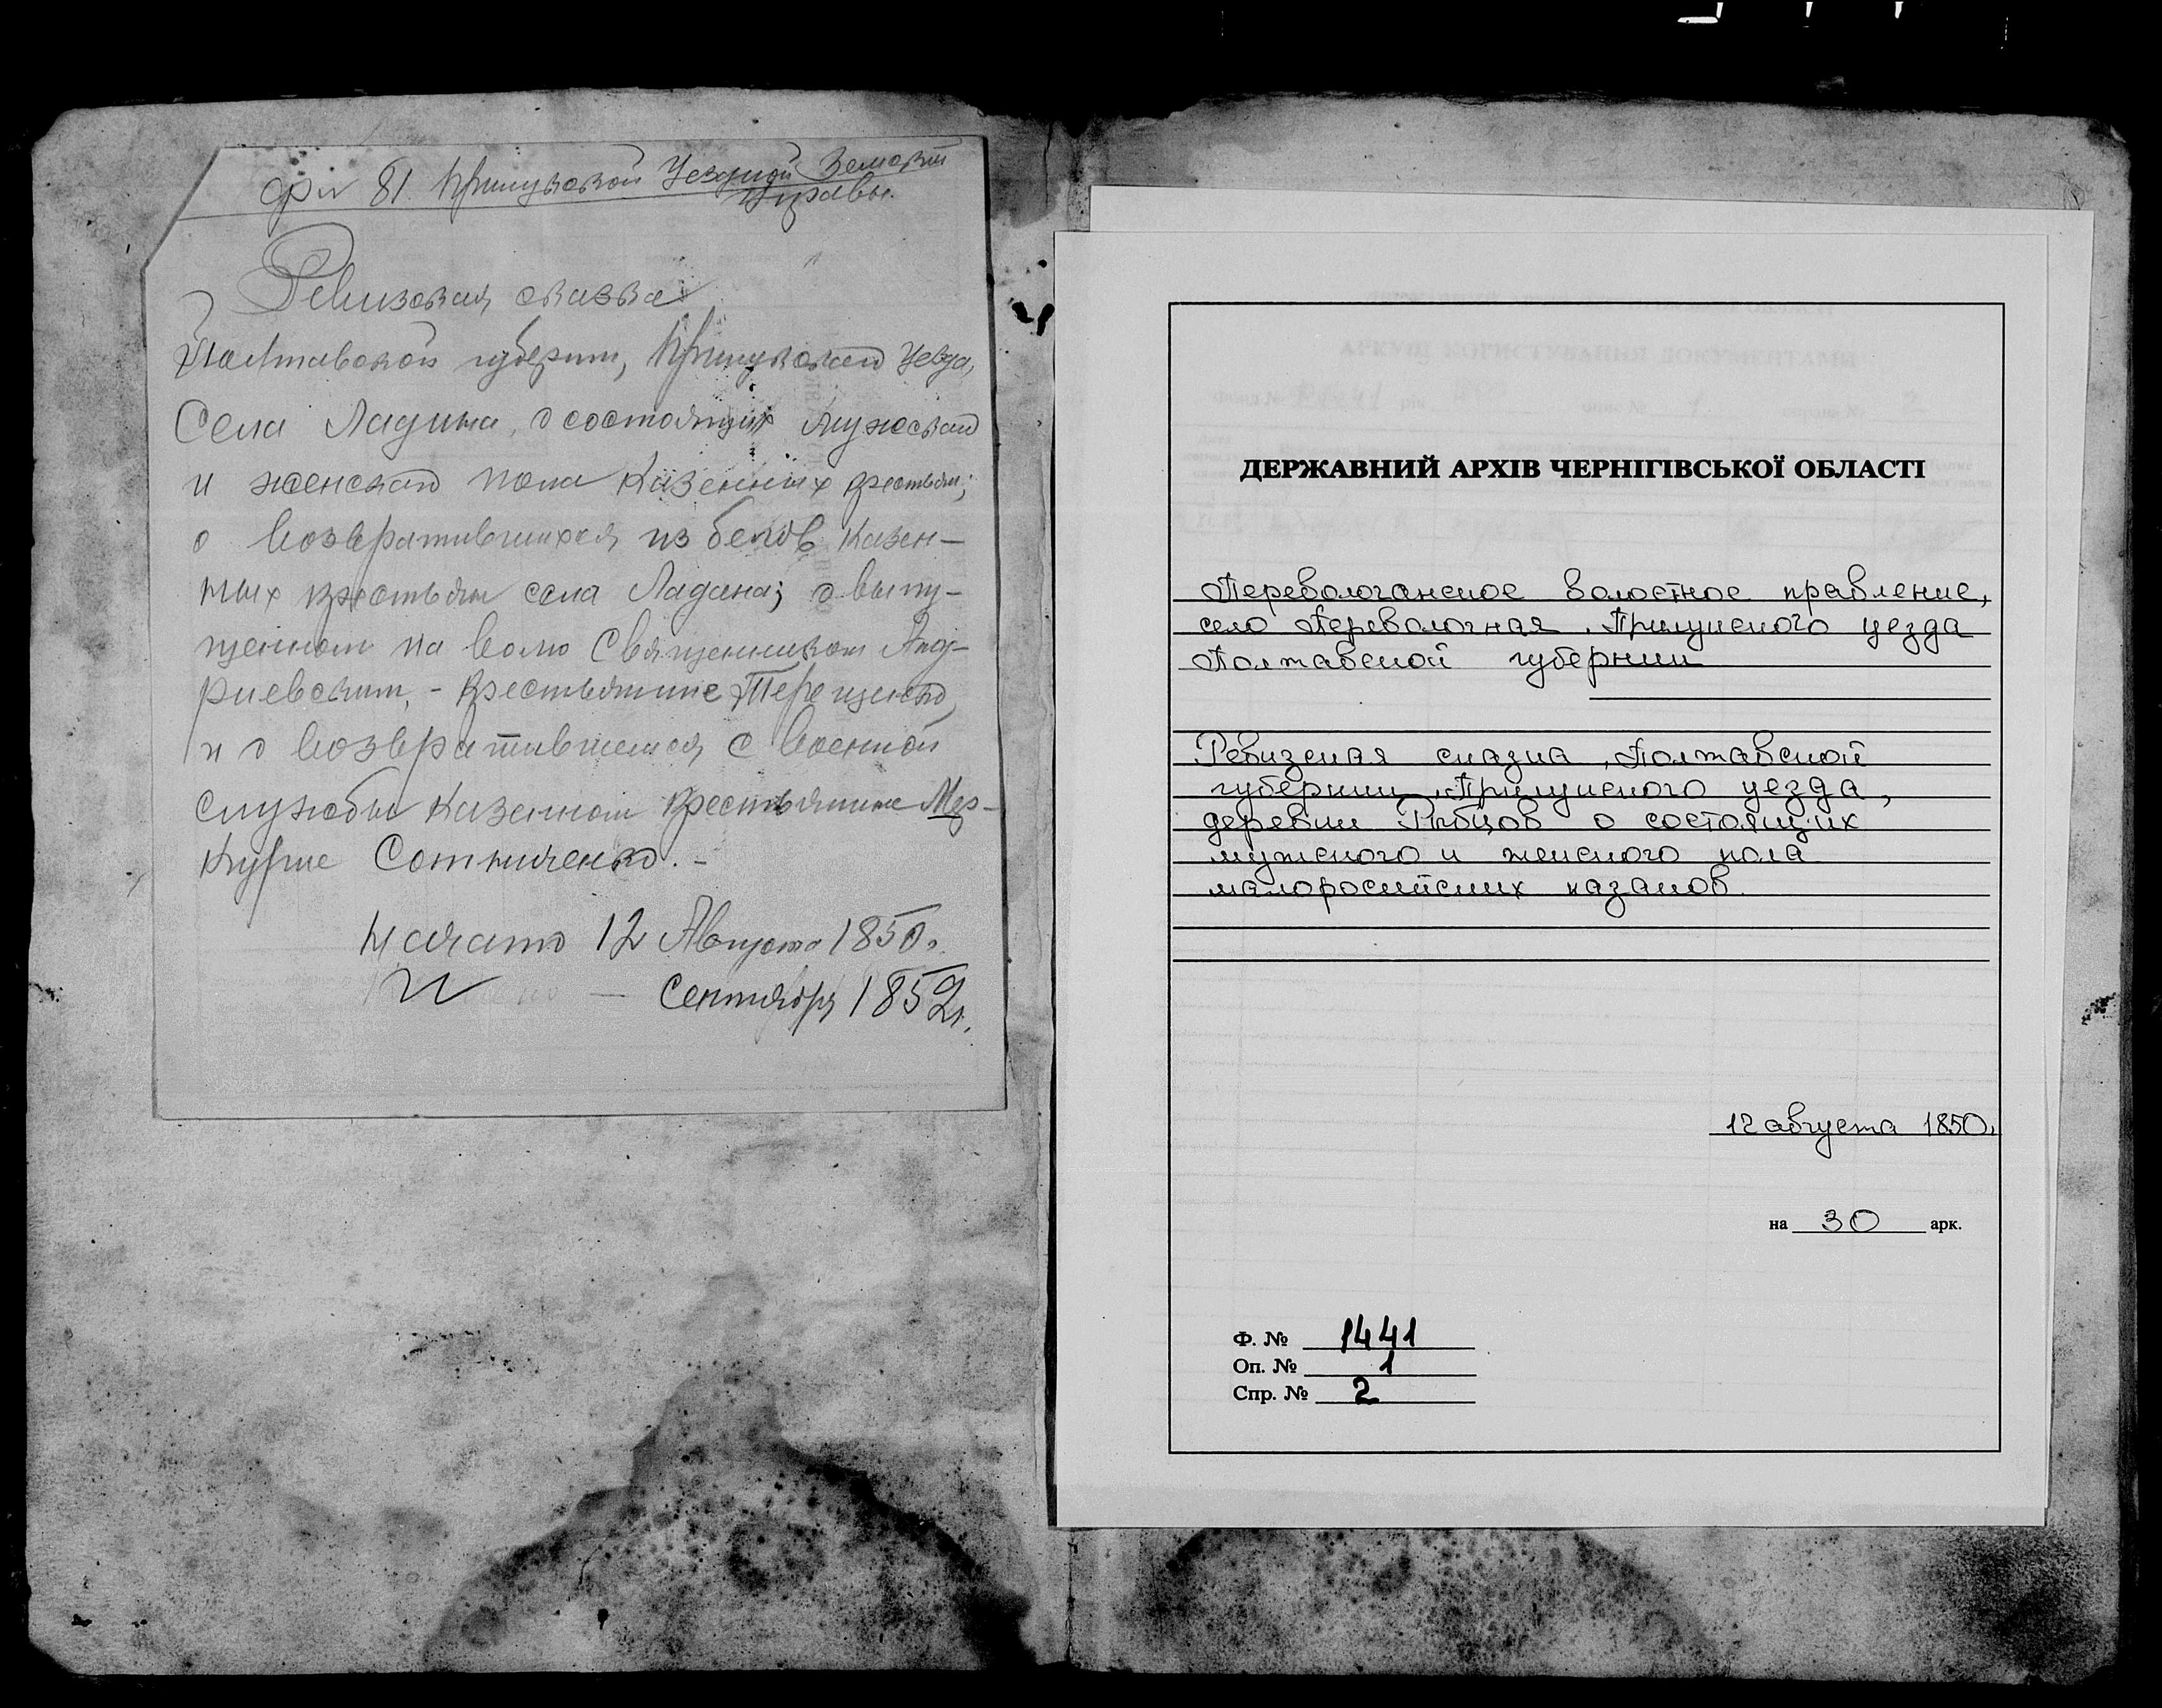 фн 81. Прилукской Уездной Земской
Управы.
Ревизская сказка
Полтавской губернии, Прилукского уезда,
Села Ладина, о состоящих мужского
и женского пола Казенных крестьян;
о возвратившихся из бегов казен-
ных крестьян села Ладана; о выпу-
щенном на волю Священником Анд-
риевским, - крестьянине Терещенко,
и о возвратившемся с военной
службы казенном крестьянине Мер-
курие Сотниченко. -
Начато 12 Августа 1850.
— Сентября 1852г.
ДЕРЖАВНИЙ АРХІВ ЧЕРНІГІВСЬКОЇ ОБЛАСТІ
Переволочанское волостное правление,
село Переволочная, Прилуцкого уезда
Полтавской губернии
Ревизская сказка, Полтавской
губернии, Прилуцкого уезда,
деревни Рибцов о состоящих
мужского и женского пола
малоросийских казаков.
12 августа 1850.
на 30 арк.
Ф. № 1441
Оп. № 1
Спр. № 2